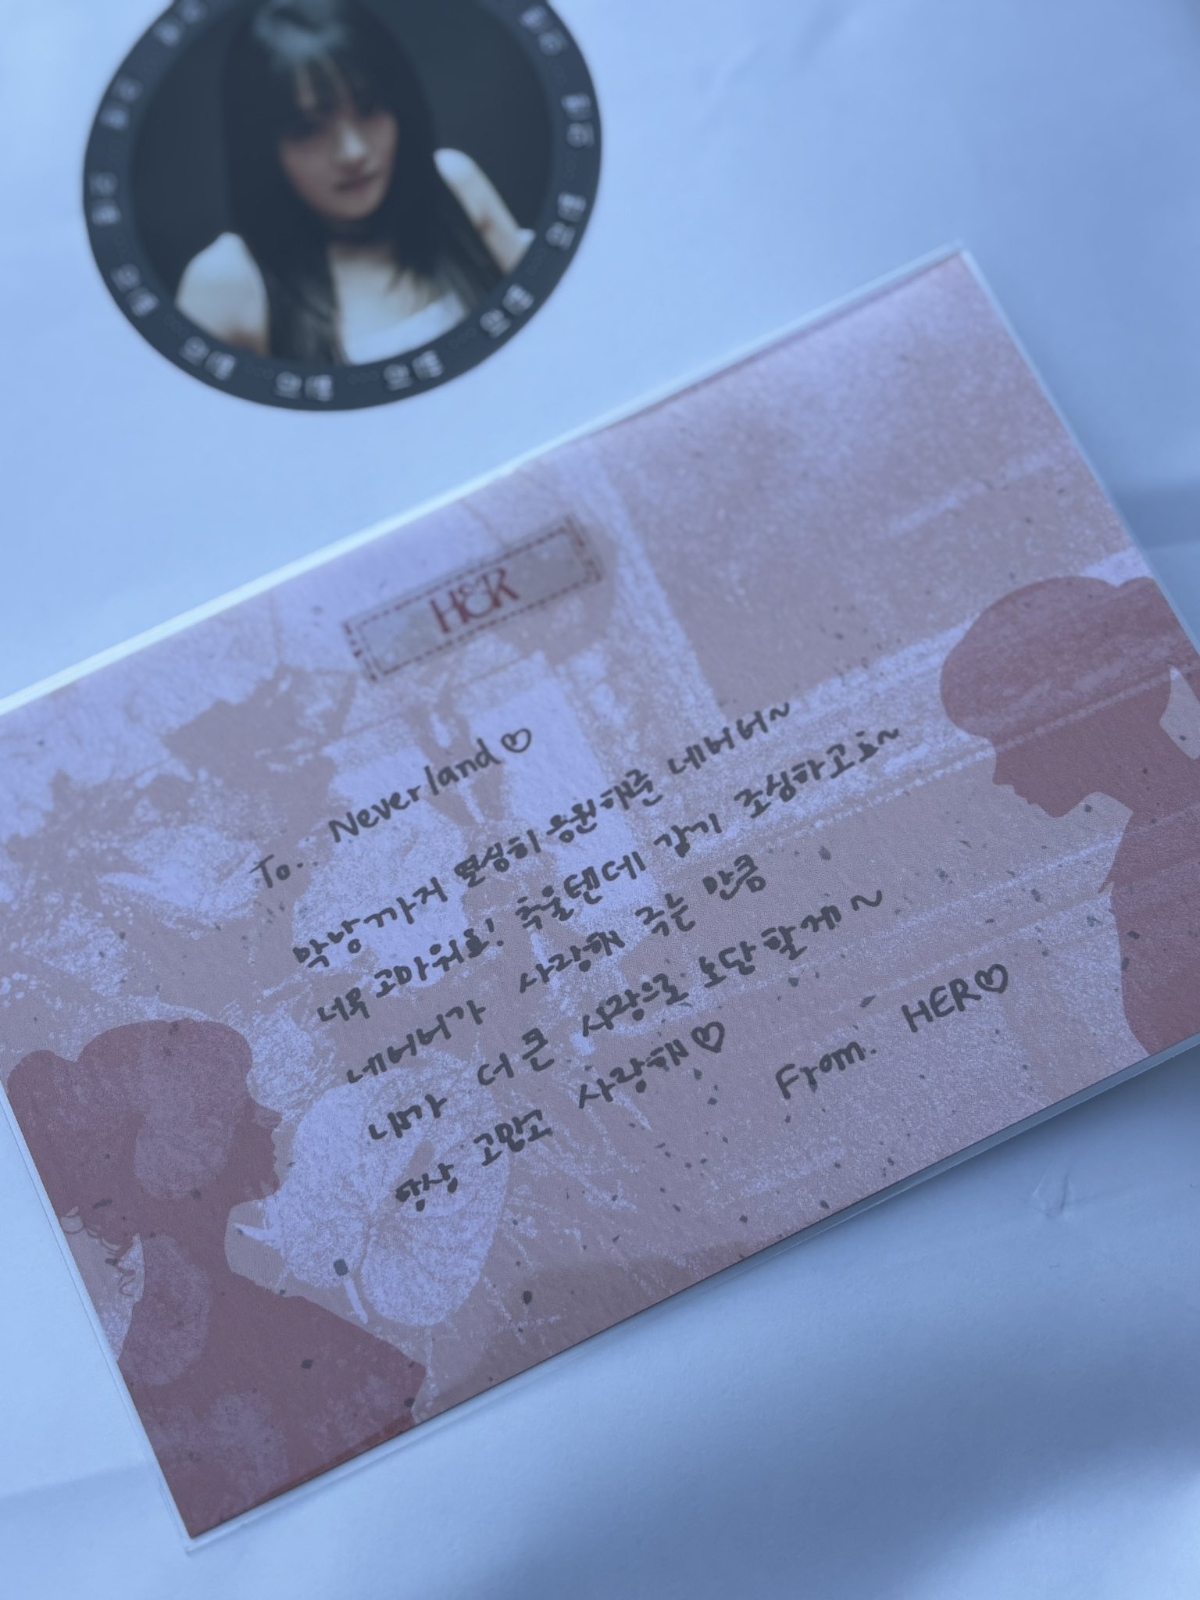 H&R
To. Neverland♡
막냥까지 열심히 응원해준 네버버~
너무 고마워요! 추울텐데 감기 조심하고요~
네버버가 사랑해 주는 만큼
내가 더 큰 사랑으로 보답할게~
항상 고맙고 사랑해♡
From. HER♡